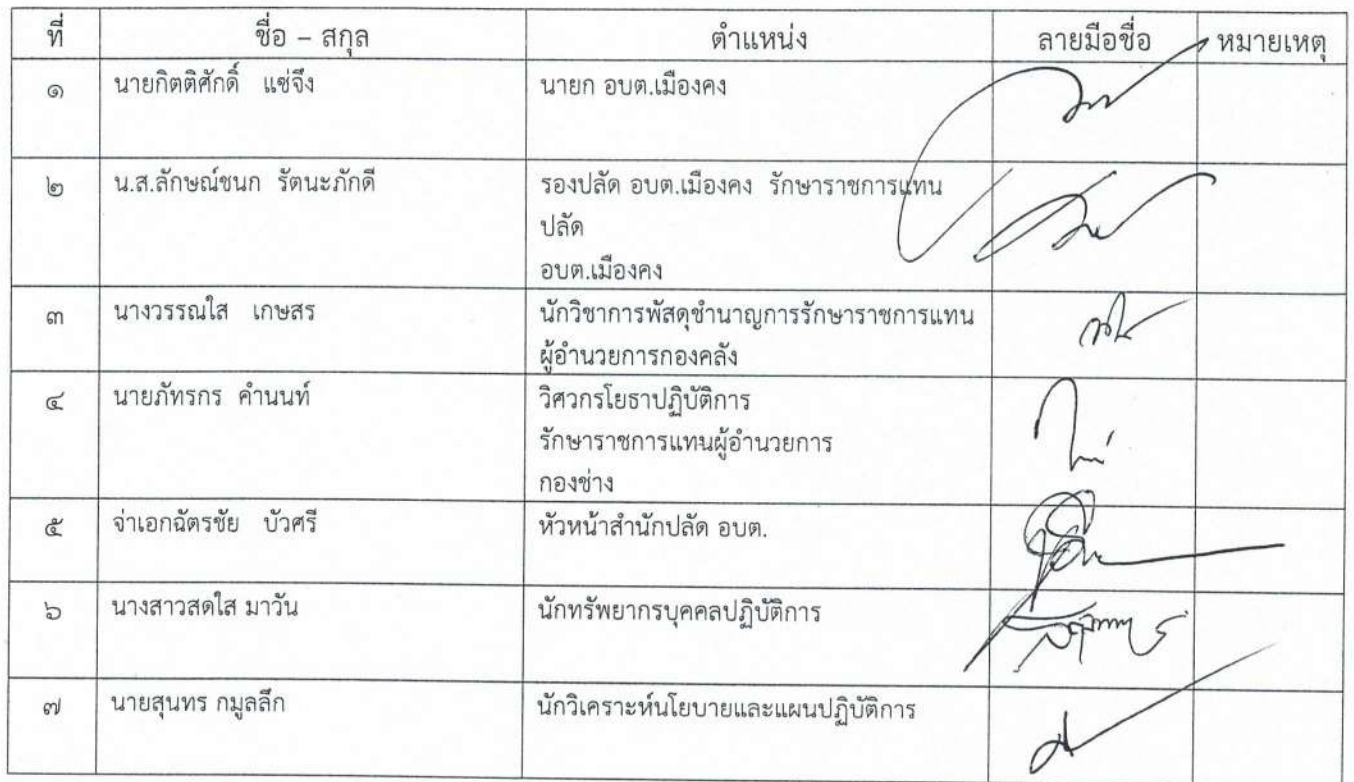 ที่ ชื่อ – สกุล ตำแหน่ง ลายมือชื่อ หมายเหตุ
๑ นายกิตติศักดิ์ แซ่จึง นายก อบต.เมืองคง
๒ น.ส.ลักษณ์ชนก รัตนะภักดี รองปลัด อบต.เมืองคง รักษาราชการแทน
ปลัด
อบต.เมืองคง
๓ นางวรรณใส เกษสร นักวิชาการพัสดุชำนาญการรักษาราชการแทน
ผู้อำนวยการกองคลัง
๔ นายภัทรกร คำนนท์ วิศวกรโยธาปฏิบัติการ
รักษาราชการแทนผู้อำนวยการ
กองช่าง
๕ จ่าเอกฉัตรชัย บัวศรี หัวหน้าสำนักปลัด อบต.
๖ นางสาวสดใส มาวัน นักทรัพยากรบุคคลปฏิบัติการ
๗ นายสุนทร กมูลลึก นักวิเคราะห์นโยบายและแผนปฏิบัติการ